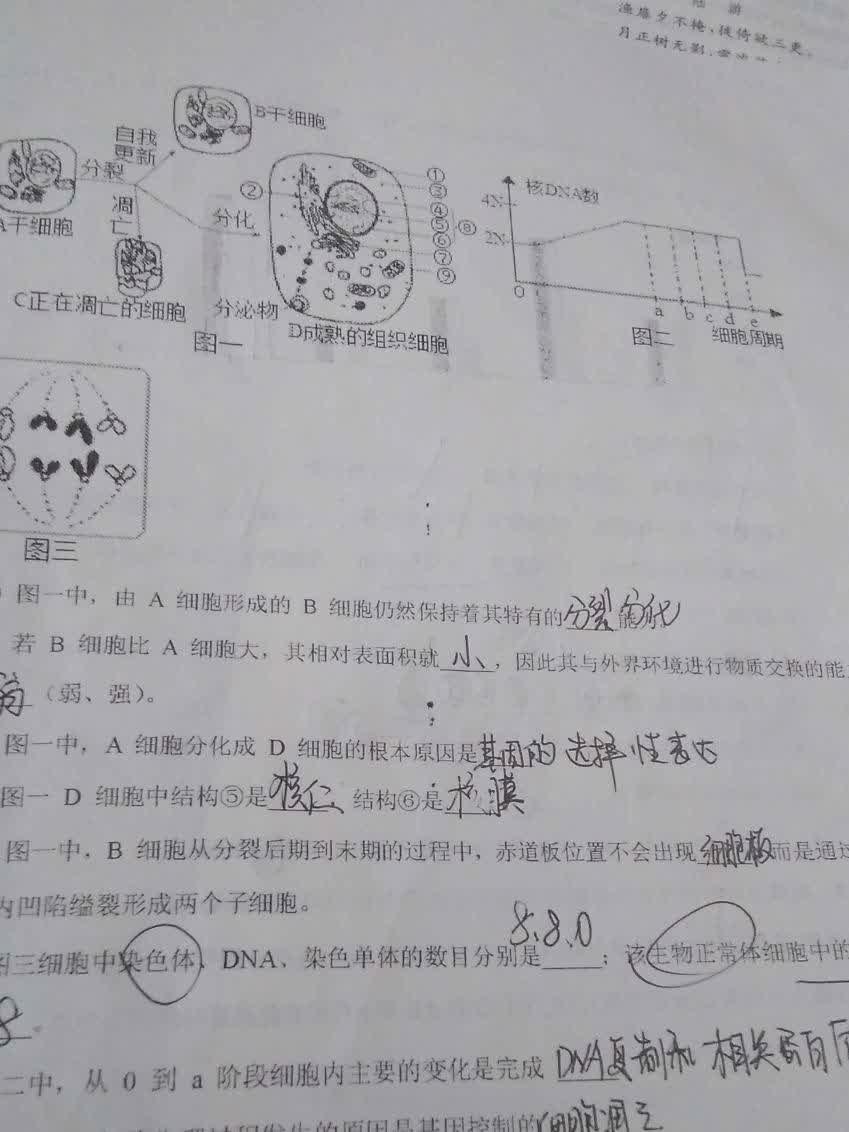 陆 游
渔扉夕不掩，徙倚欲三更。
月正树无影，
B干细胞
自我
更新
分裂
①
②
③
④
⑤
⑥
⑧
⑦
⑨
核DNA数
4N
2N
0
凋
亡
分化
A干细胞
C正在凋亡的细胞
分泌物
D成熟的组织细胞
图一
a b c d e
图二
细胞周期
图三
图一中，由 A 细胞形成的 B 细胞仍然保持着其特有的分裂能力
若 B 细胞比 A 细胞大，其相对表面积就小，因此其与外界环境进行物质交换的能
（弱、强）。
图一中，A 细胞分化成 D 细胞的根本原因是基因的选择性表达
图一 D 细胞中结构⑤是核仁、结构⑥是核膜
图一中，B 细胞从分裂后期到末期的过程中，赤道板位置不会出现细胞板而是通过
内凹陷缢裂形成两个子细胞。
图三细胞中染色体、DNA、染色单体的数目分别是8.8.0；该生物正常体细胞中的
8。
二中，从 0 到 a 阶段细胞内主要的变化是完成DNA复制和相关蛋白
发生的原因是基因控制的细胞凋亡